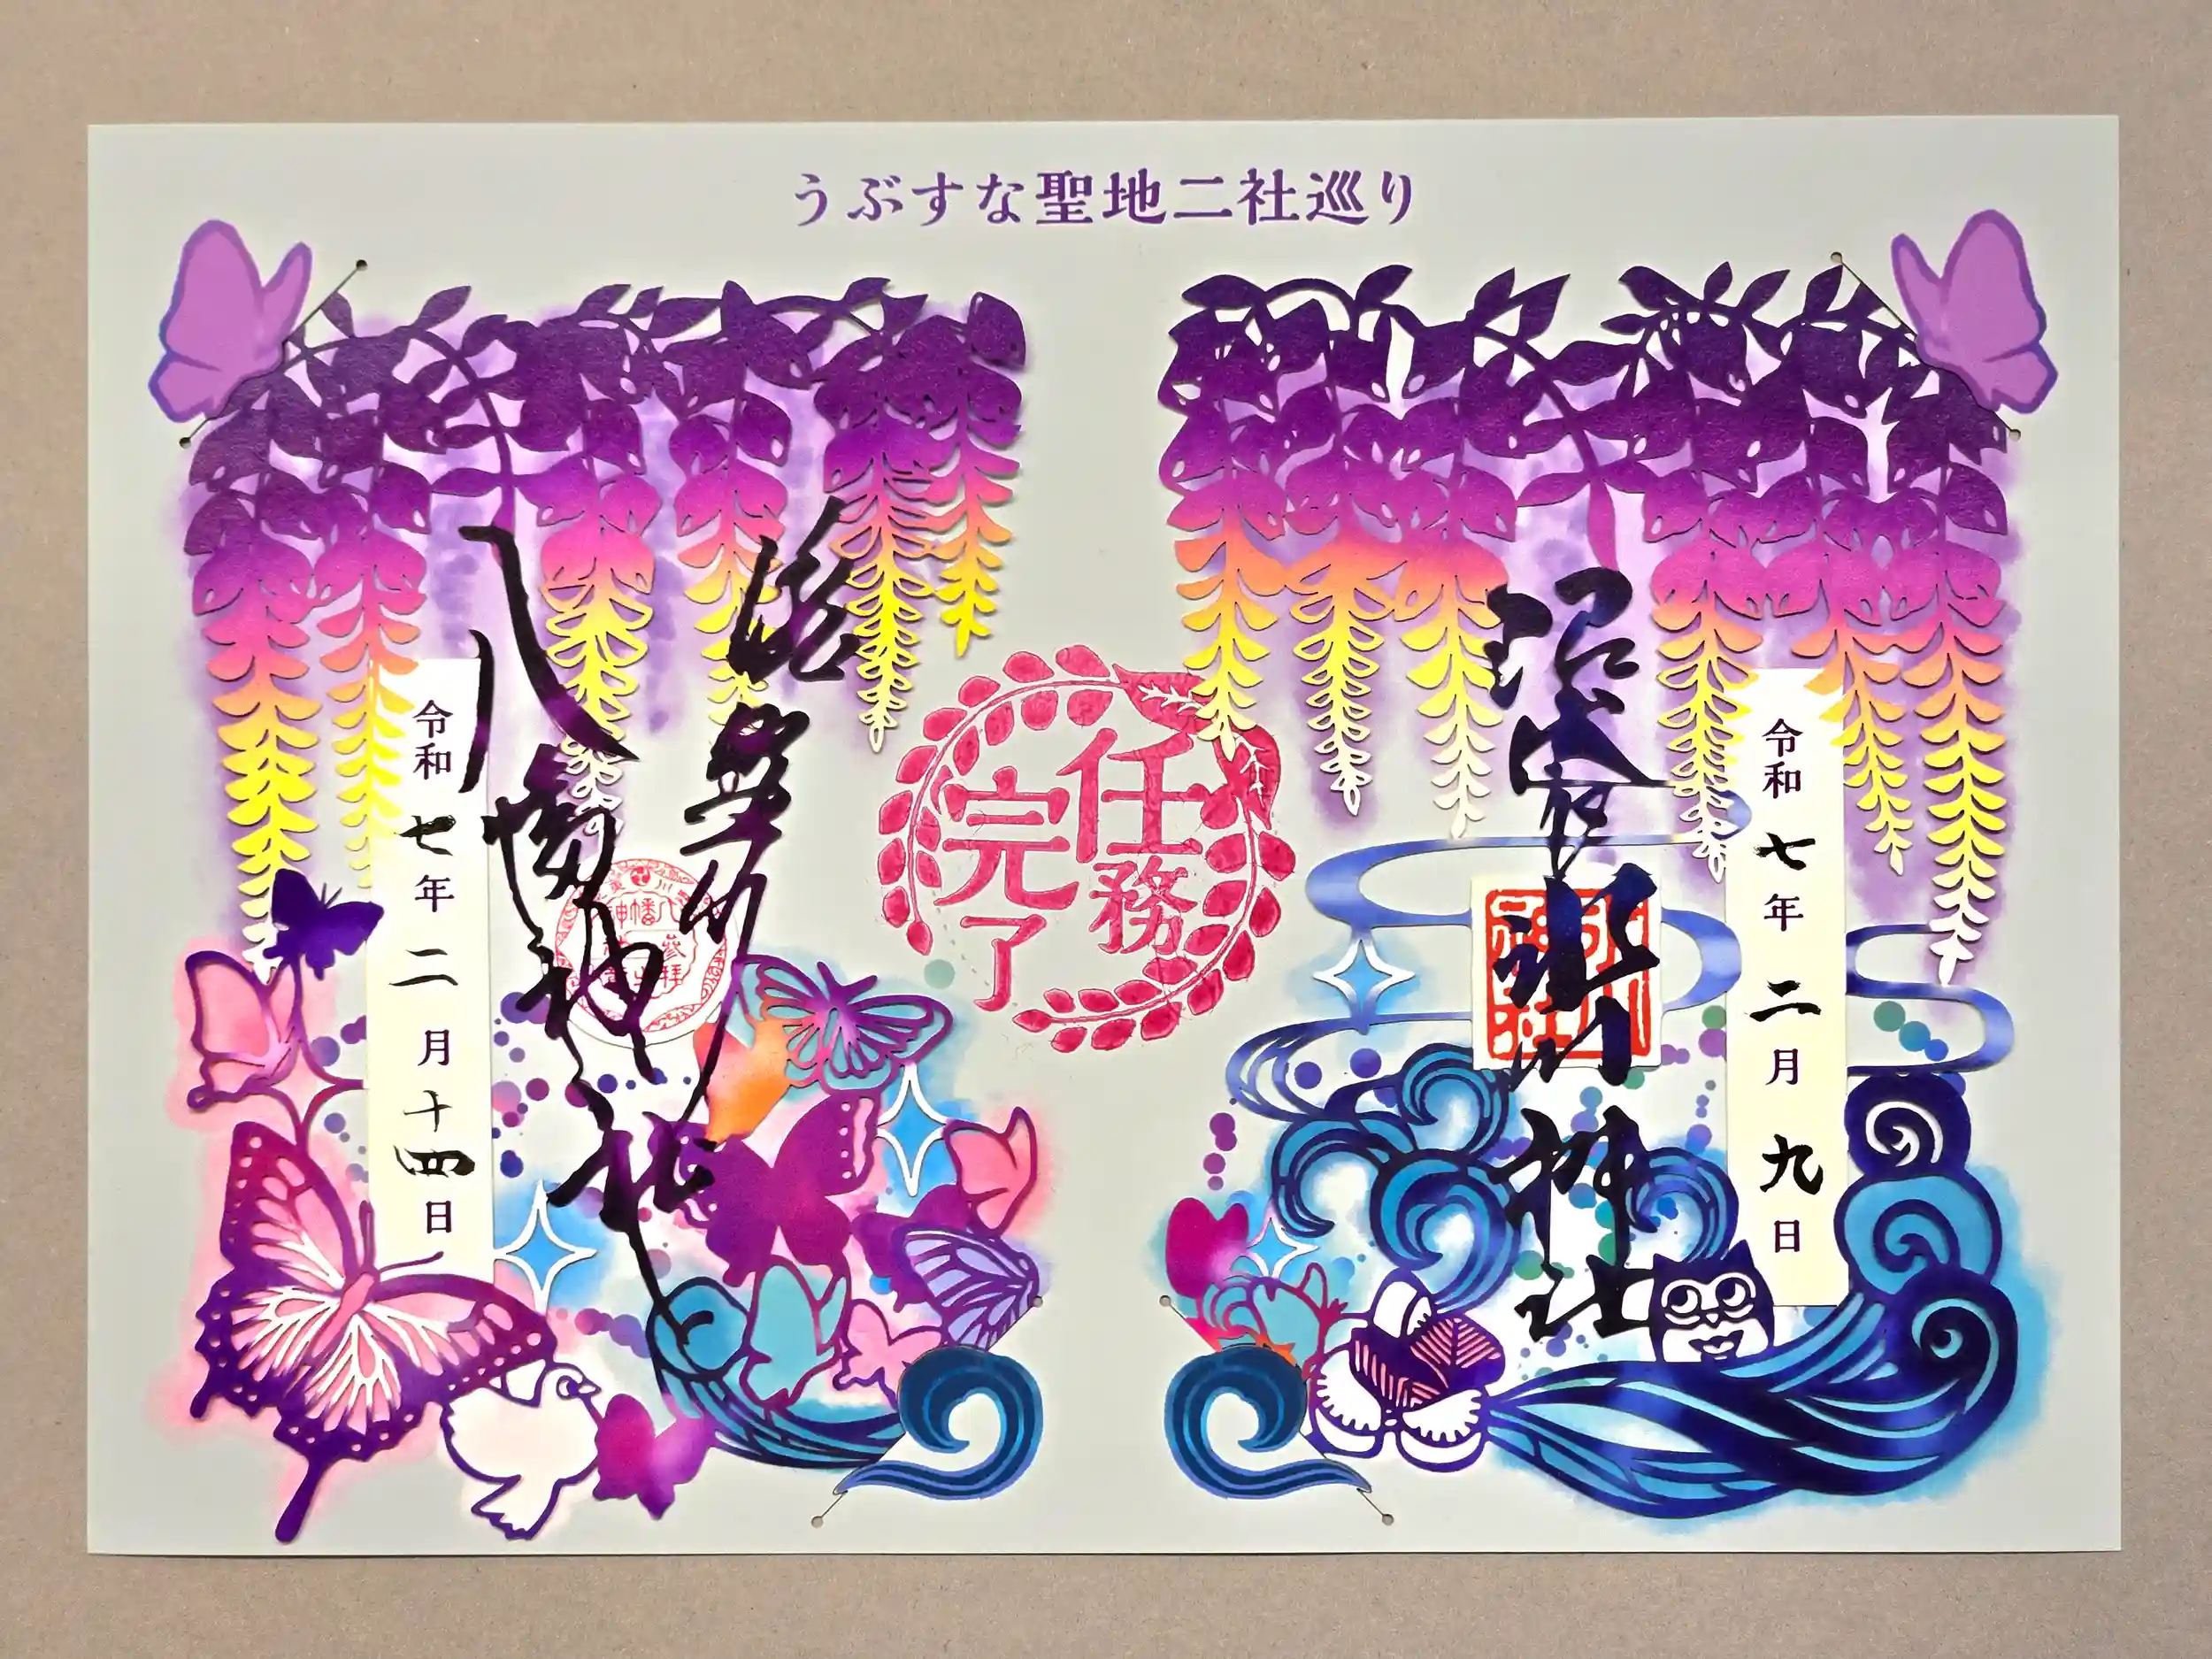 うぶすな聖地二社巡り
氷川神社
令和七年二月九日
任務
完了
八幡神社
令和七年二月十四日